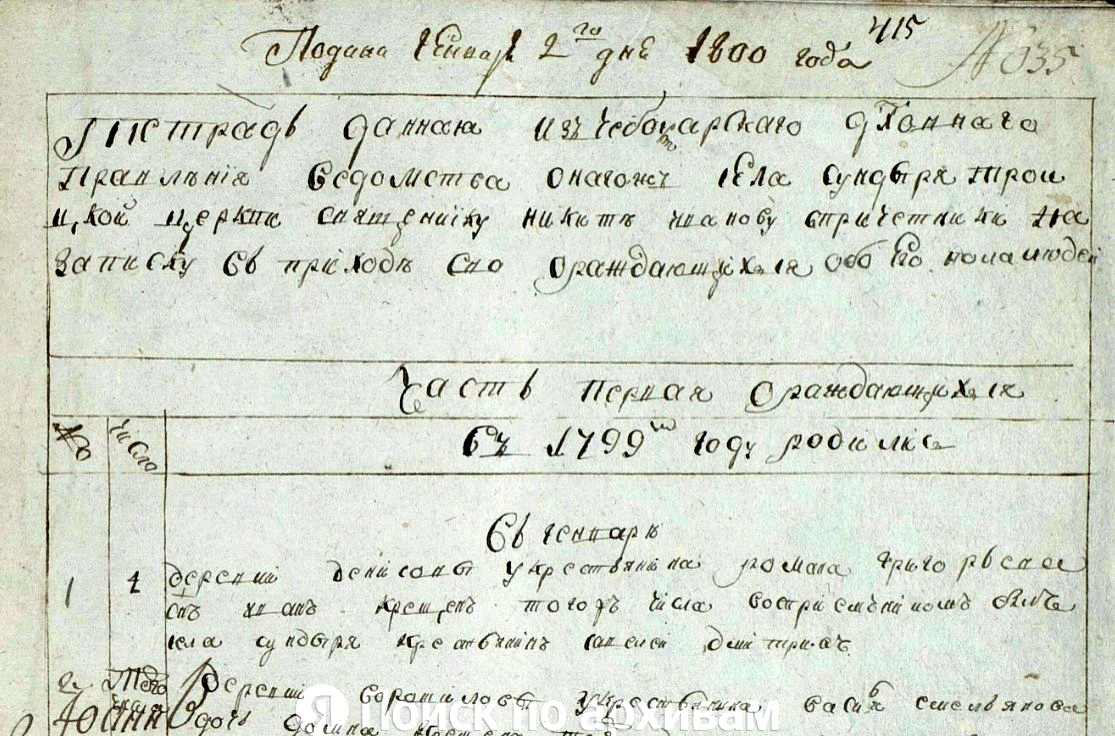 Подана Генваря 2го дня 1800 года 415 №635
Тетрадь данная изъ Чебоксарскаго дховнаго
Правлѣнія ведомства онагожъ села сундыря трои
цкой церкви священнику никитѣ иванову спричетники на
записку въ приходѣ ево ораждающихся обоего пола людей
Часть первая ораждающихся
№ число Въ 1799м году родились
Въ генварѣ
1 1 деревни денисовы укрестьянина романа григорьева
снъ иванъ крещенъ тогожъ числа восприемникомъ былъ
села сундыря крестьянинъ алексей дмитриевъ
2 деревни вороши ловы укрестьянина васил смельянова
дочь домна
Поиск по архивам